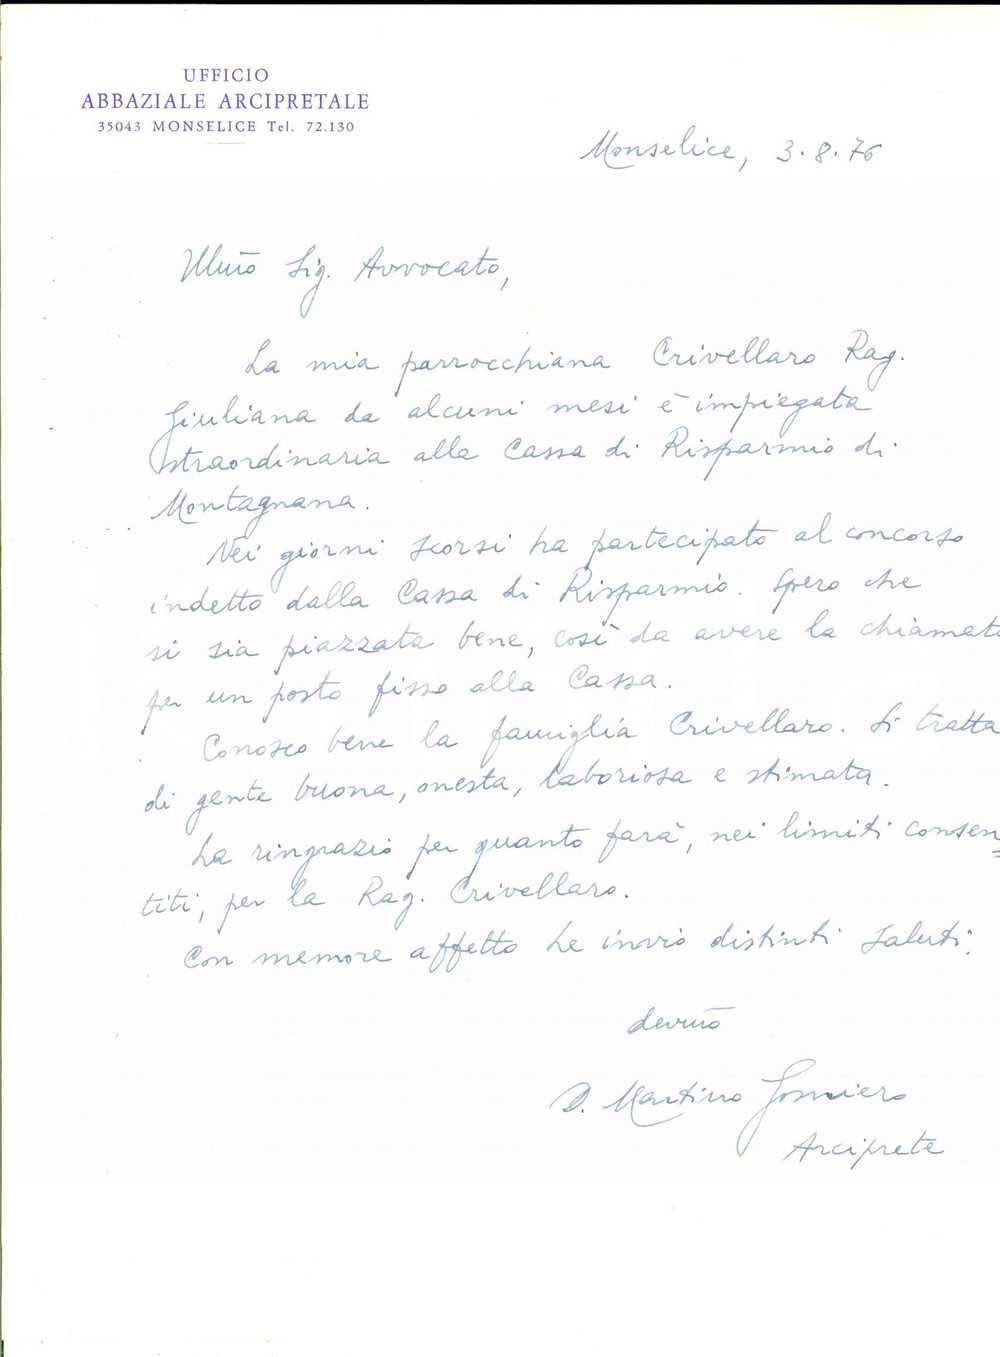 UFFICIO
ABBAZIALE ARCIPRETALE
35043 MONSELICE Tel. 72.130
Monselice, 3.8.76
Ill.mo Sig. Avvocato,
La mia parrocchiana Crivellaro Rag.
Giuliana da alcuni mesi è impiegata
straordinaria alla Cassa di Risparmio di
Montagnana.
Nei giorni scorsi ha partecipato al concorso
indetto dalla Cassa di Risparmio. Spero che
si sia piazzata bene, così da avere la chiamata
per un posto fisso alla Cassa.
Conosco bene la famiglia Crivellaro. Si tratta
di gente buona, onesta, laboriosa e stimata.
La ringrazio per quanto farà, nei limiti consen=
titi, per la Rag. Crivellaro.
Con memore affetto Le invio distinti saluti.
dev.mo
D. Martino Gomiero
Arciprete